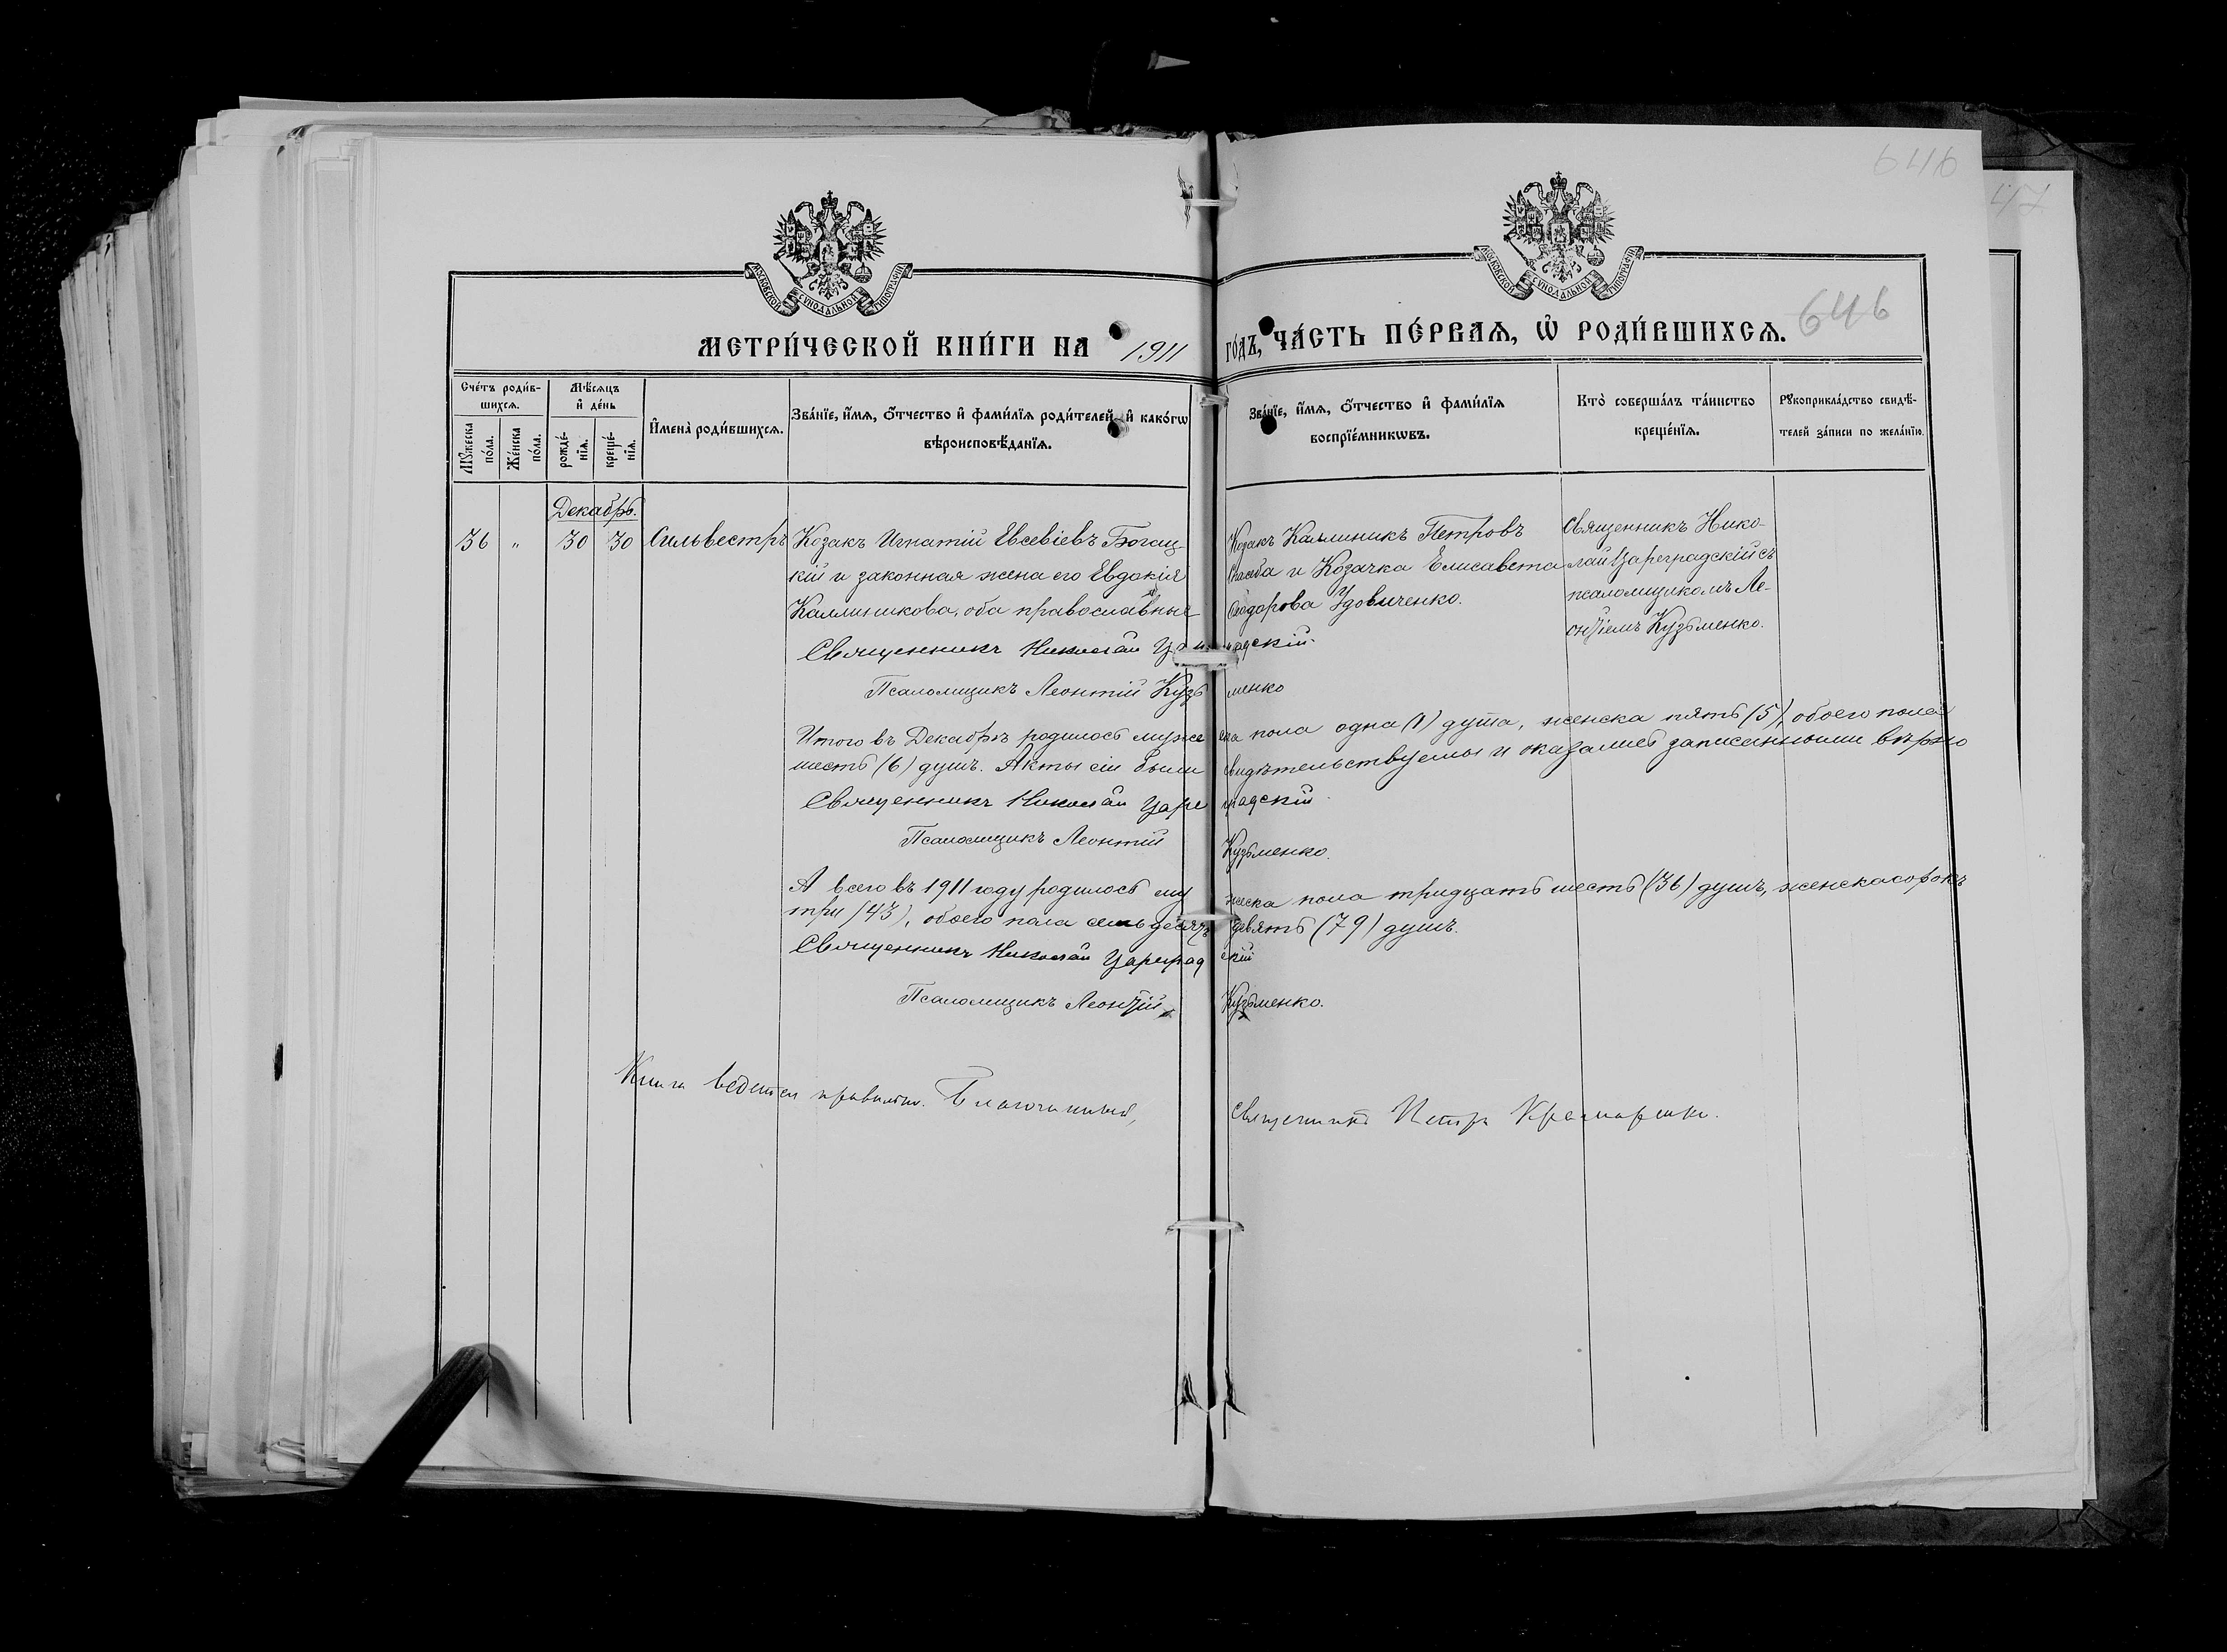 646
47
МОСКОВСКОЙ СУНОДАЛЬНОЙ ТИПОГРАФІИ
МОСКОВСКОЙ СУНОДАЛЬНОЙ ТИПОГРАФІИ
646
МЕТРИ́ЧЕСКОЙ КНИ́ГИ НА 1911 ГО́ДЪ, ЧА́СТЬ ПЕ́РВАЯ, Ѿ РОДИ́ВШИХСЯ.
Сче́тъ роди́в-
шихся.
Мѣ́сяцъ
и҆ де́нь
Мꙋ́жеска по́ла.
Же́нска по́ла.
рожде́-
нїя.
креще́-
нїя.
И҆мена̀ роди́вшихся.
Зва́нїе, и҆́мя, ѻ҆́тчество и҆ фами́лїя роди́телей, и҆ како́гѡ
вѣроисповѣ́данїя.
Зва́нїе, и҆́мя, ѻ҆́тчество и҆ фами́лїя
воспрїе́мникѡвъ.
Кто̀ соверша́лъ та́инство
креще́нїя.
Рꙋкоприкла́дство свидѣ́-
телей за́писи по жела́нїю.
Декабрь.
36 „ 30 30 Сильвестръ Козакъ Игнатій Евсевіевъ Богац- Козакъ Каллиникъ Петровъ Священникъ Нико-
кій и законная жена его Евдокія и Козачка Елисавета лай Цареградскій съ
Каллиникова, оба православные Ѳеодорова Удовиченко. псаломщикомъ Ле-
онтіемъ Кузьменко.
Священникъ Николай Цареградскій.
Псаломщикъ Леонтій Кузьменко
Итого въ Декабрѣ родилось мужеска пола одна (1) душа, женска пять (5), обоего пола
шесть (6) душъ. Акты сіи были свидѣтельствуемы и оказались записанными вѣрно
Священникъ Николай Цареградскій.
Псаломщикъ Леонтій Кузьменко.
А всего въ 1911 году родилось мужеска пола тридцать шесть (36) душъ, женска сорокъ
три (43), обоего пола семьдесятъ девять (79) душъ.
Священникъ Николай Цареградскій
Псаломщикъ Леонтій Кузьменко.
Книга ведется правильно. Благочинный, Священникъ Петръ Крамаренко.